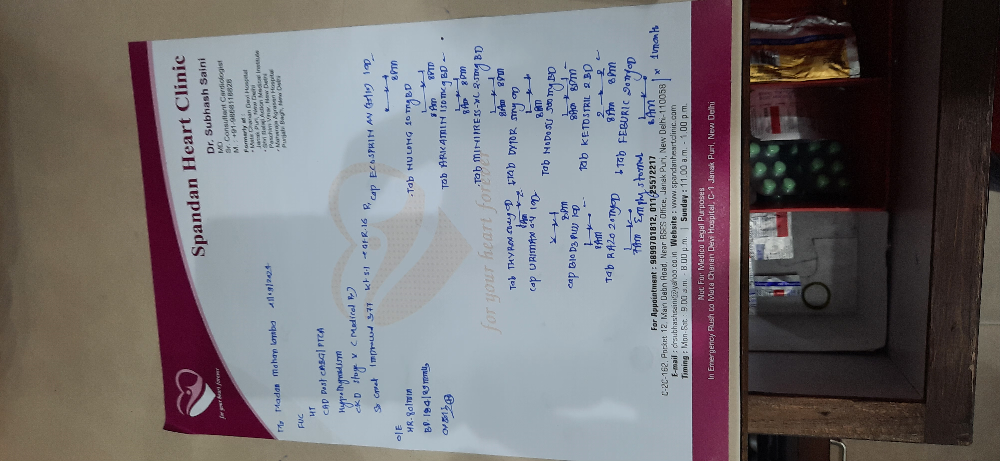 Spandan Heart Clinic
Dr. Subhash Saini
MD
Sr. Consultant Cardiologist
M. : +91-9868116828
Formerly at
• Mata Chanan Devi Hospital
Janak Puri, New Delhi
• Sri Balaji Action Medical Institute
Paschim Vihar, New Delhi
• Maharaja Agrasen Hospital
Punjabi Bagh, New Delhi
for your heart forever
Mr Madan mohan
FUC
HT
CAD Post CABG/PTCA
Hypothyroidism
CKD stage V C Medical
O/E
HR-80/min
for your heart forever
cap ECOSPRIN AV
8PM
Tab NULONG 10mg BD
8AM 8PM
Tab ARKAMIN 150mcg BD
8AM 8PM
Tab MINIPRESS-XL 2.5mg BD
8AM 8PM
Tab DYTOR 5mg OD
8AM
Tab NODOSIS 500mg OD
8AM 8PM
Tab KETOSTRIL 2 BD
2 2
8AM 8PM
Tab FEBURIC 20mg OD
8AM
x 1 month
Tab THYROX
7AM
cap URIMAX
8PM
cap BIOD3 PLUS 1OD
8AM
Tab RAZO 20mg OD
7AM Empty stomach
For Appointment : 9899701812, 011-25572217
C-2C-162, Pocket 12, Main Dabri Road, Near BSES Office, Janak Puri, New Delhi-110058
E-mail : drsubhashsaini@yahoo.co.in Website : www.spandanheartclinic.com
Timing : Mon-Sat.: 6.00 a.m. - 8.00 p.m. | Sunday : 11.00 a.m. - 1.00 p.m.
Not For Medico Legal Purposes
In Emergency Rush to Mata Chanan Devi Hospital, C-1 Janak Puri, New Delhi